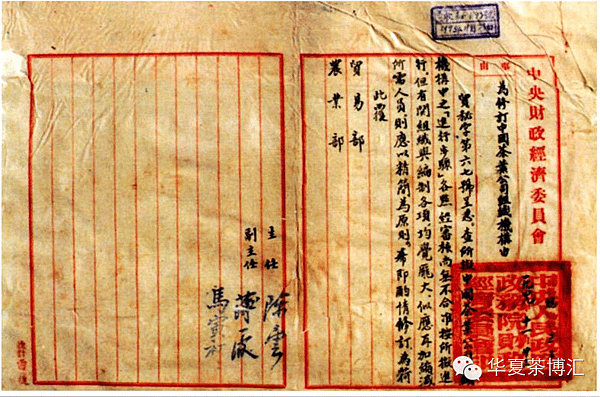 中央財政經濟委員會
事由
為修訂中國茶葉公司組織機構由
貿秘字第六七號呈悉查所擬中國茶葉公
機構中之「進行步驟」各點經審核尚無不合准按所擬進
行但有關組織與編制各項均覺龐大似應再加縮減
所需人員則應以精簡為原則。希即酌情修訂為荷
此覆
貿易部
農業部
主任 陳雲
副主任 薄一波
馬寅初
华夏茶博汇